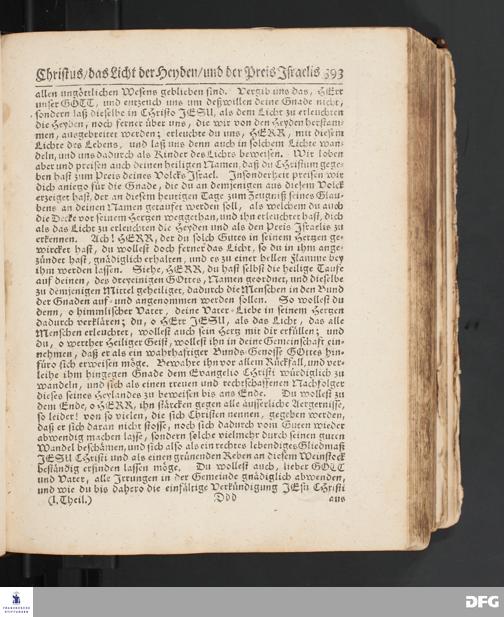 Christus/das Licht der Heyden/und der Preis Israelis 393
allen ungöttlichen Wesens geblieben sind. Vergib uns das, HErr
unser GOTT, und entzeuch uns um deßwillen deine Gnade nicht,
sondern laß dieselbe in Christo JESU, als dem Licht zu erleuchten
die Heyden, noch ferner über uns, die wir von den Heyden herstam-
men, ausgebreitet werden; erleuchte du uns, HERR, mit diesem
Lichte des Lebens, und laß uns denn auch in solchem Lichte wan-
deln, und uns dadurch als Kinder des Lichts beweisen. Wir loben
aber und preisen auch deinen heiligen Namen, daß du Christum gege-
ben hast zum Preis deines Volcks Israel. Insonderheit preisen wir
dich anietzo für die Gnade, die du an demjenigen aus diesem Volck
erzeiget hast, der an diesem heutigen Tage zum Zeugniß seines Glau-
bens an deinen Namen getaufet werden soll, als welchem du auch
die Decke vor seinem Hertzen weggethan, und ihn erleuchtet hast, dich
als das Licht zu erleuchten die Heyden und als den Preis Israelis zu
erkennen. Ach! HERR, der du solch Gutes in seinem Hertzen ge-
wircket hast, du wollest doch ferner das Licht, so du in ihm ange-
zündet hast, gnädiglich erhalten, und es zu einer hellen Flamme bey
ihm werden lassen. Siehe, HERR, du hast selbst die heilige Taufe
auf deinen, des dreyeinigen GOttes, Namen geordnet, und dieselbe
zu demjenigen Mittel geheiliget, dadurch die Menschen in den Bund
der Gnaden auf- und angenommen werden sollen. So wollest du
denn, o himmlischer Vater, deine Vater-Liebe in seinem Hertzen
dadurch verklären; du, o HErr JESU, als das Licht, das alle
Menschen erleuchtet, wollest auch sein Hertz mit dir erfüllen; und
du, o werther Heiliger Geist, wollest ihn in deine Gemeinschaft ein-
nehmen, daß er als ein wahrhaftiger Bunds-Genosse GOttes hin-
füro sich erweisen möge. Bewahre ihn vor allem Rückfall, und ver-
leihe ihm hingegen Gnade dem Evangelio CHristi würdiglich zu
wandeln, und sich als einen treuen und rechtschaffenen Nachfolger
dieses seines Heylandes zu beweisen bis ans Ende. Du wollest zu
dem Ende, o HERR, ihn stärcken gegen alle äusserliche Aergernisse,
so leider! von so vielen, die sich Christen nennen, gegeben werden,
daß er sich daran nicht stosse, noch sich dadurch vom Guten wieder
abwendig machen lasse, sondern solche vielmehr durch seinen guten
Wandel beschämen, und sich also als ein rechtes lebendiges Gliedmaß
JESU CHristi und als einen grünenden Reben an diesem Weinstock
beständig erfinden lassen möge. Du wollest auch, lieber GOTT
und Vater, alle Irrungen in der Gemeinde gnädiglich abwenden,
und wie du bis dahero die einfältige Verkündigung JEsu CHristi
(I. Theil.) Ddd aus
FRANCKESCHE
STIFTUNGEN
DFG